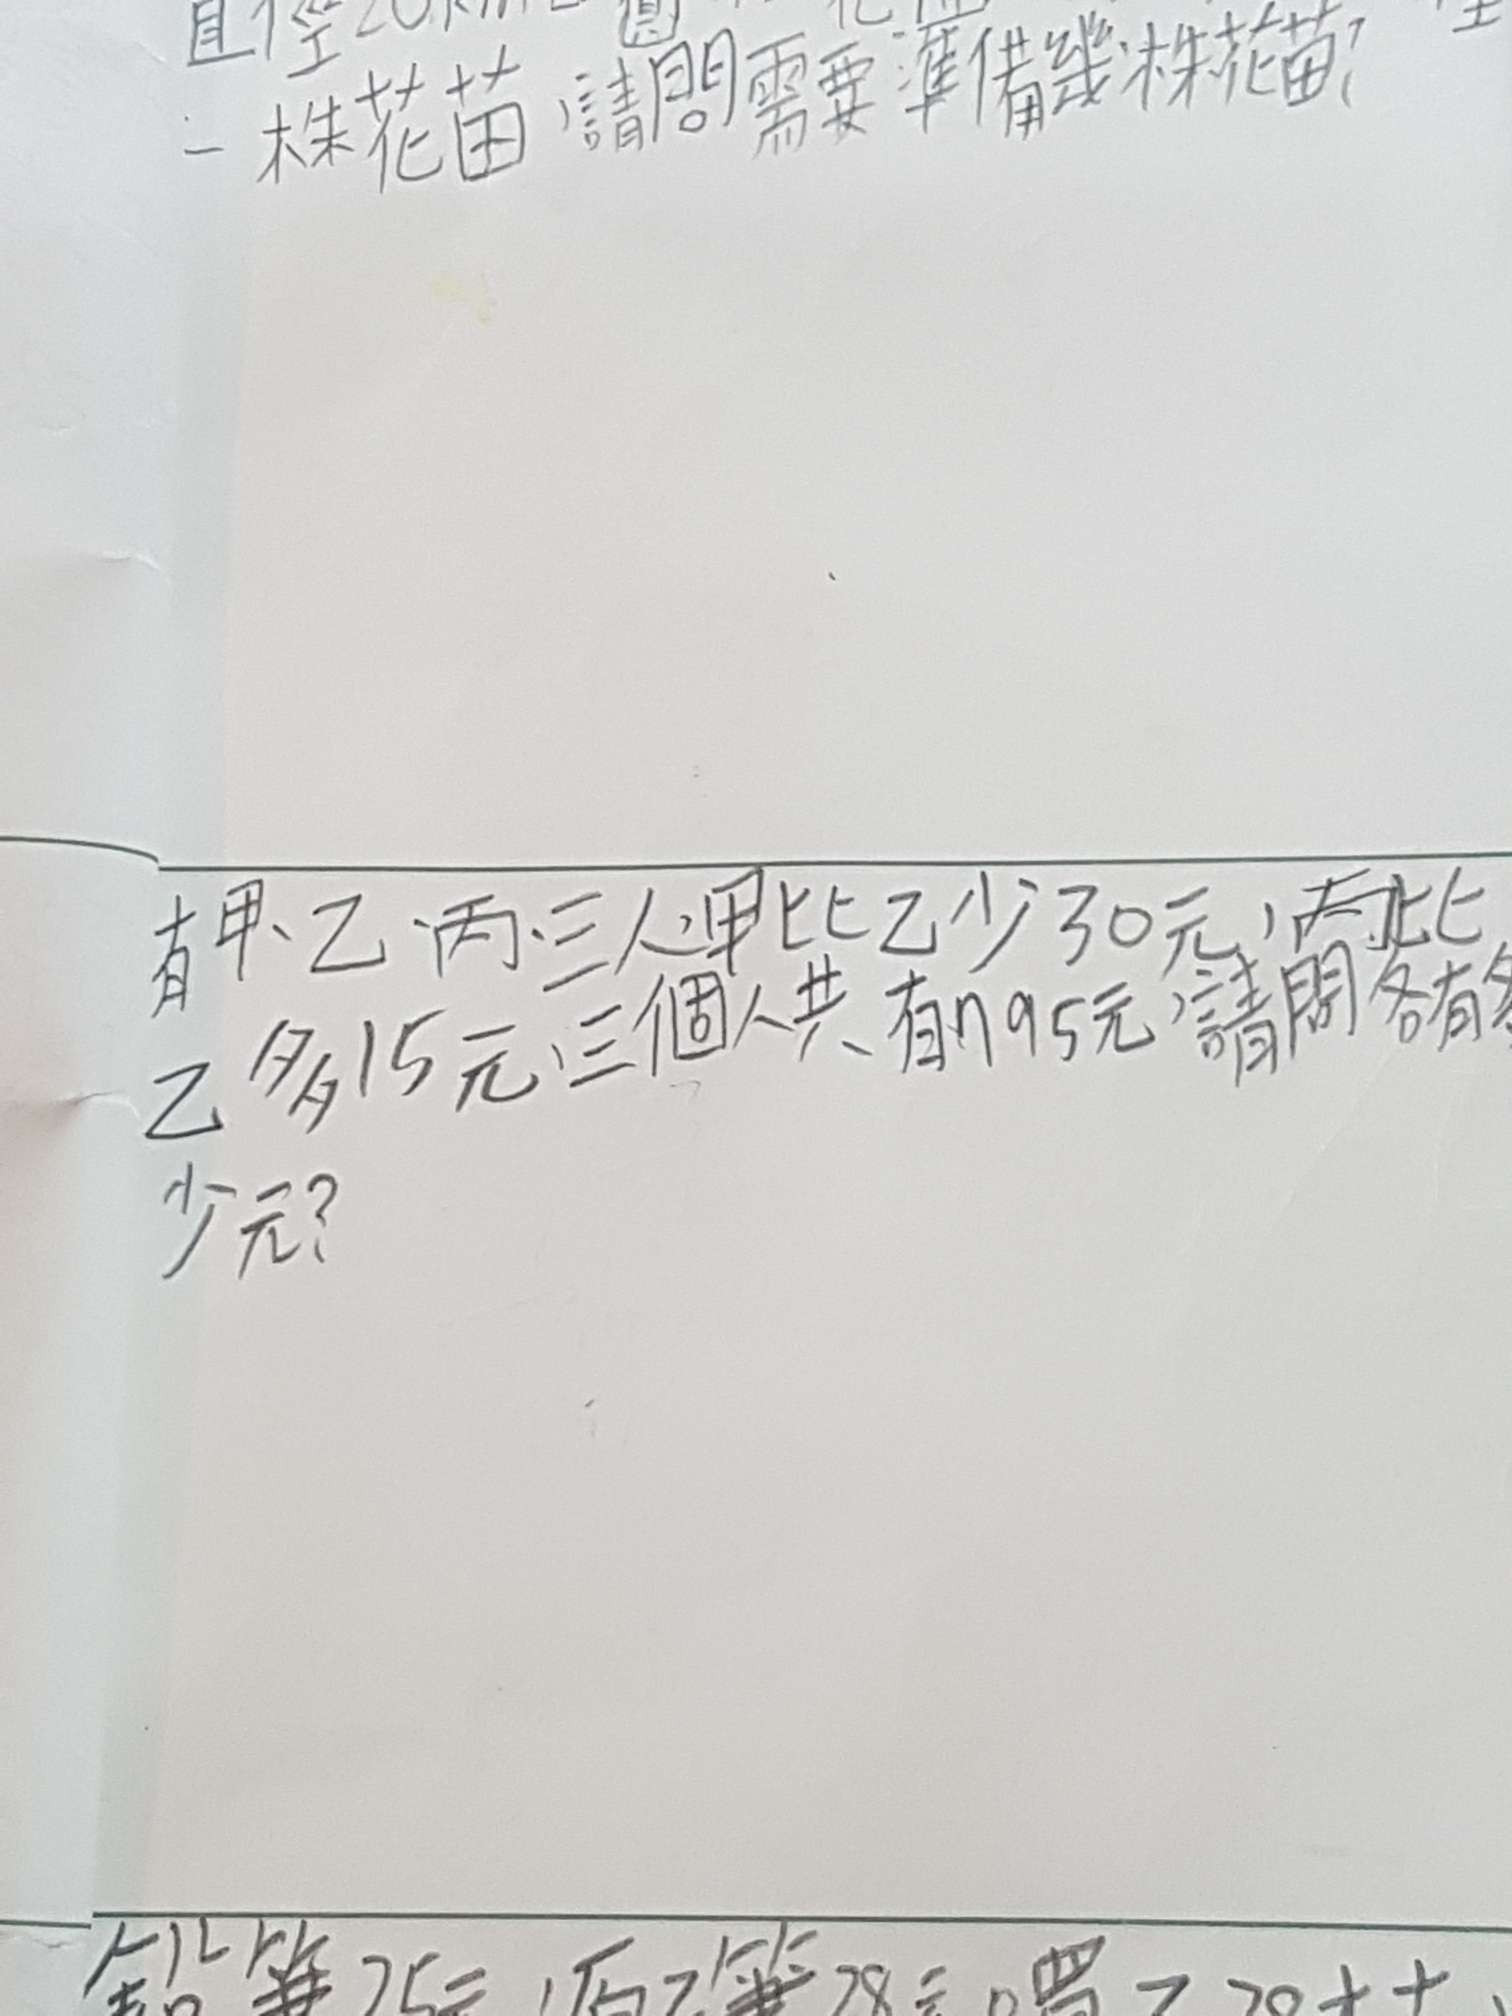 直徑20
一株花苗,請問需要準備幾株花苗?
有甲、乙、丙、三人,甲比乙少30元,丙比
乙多15元,三個人共有795元,請問各有多
少元?
鉛筆25元,原子筆28元,買了20支